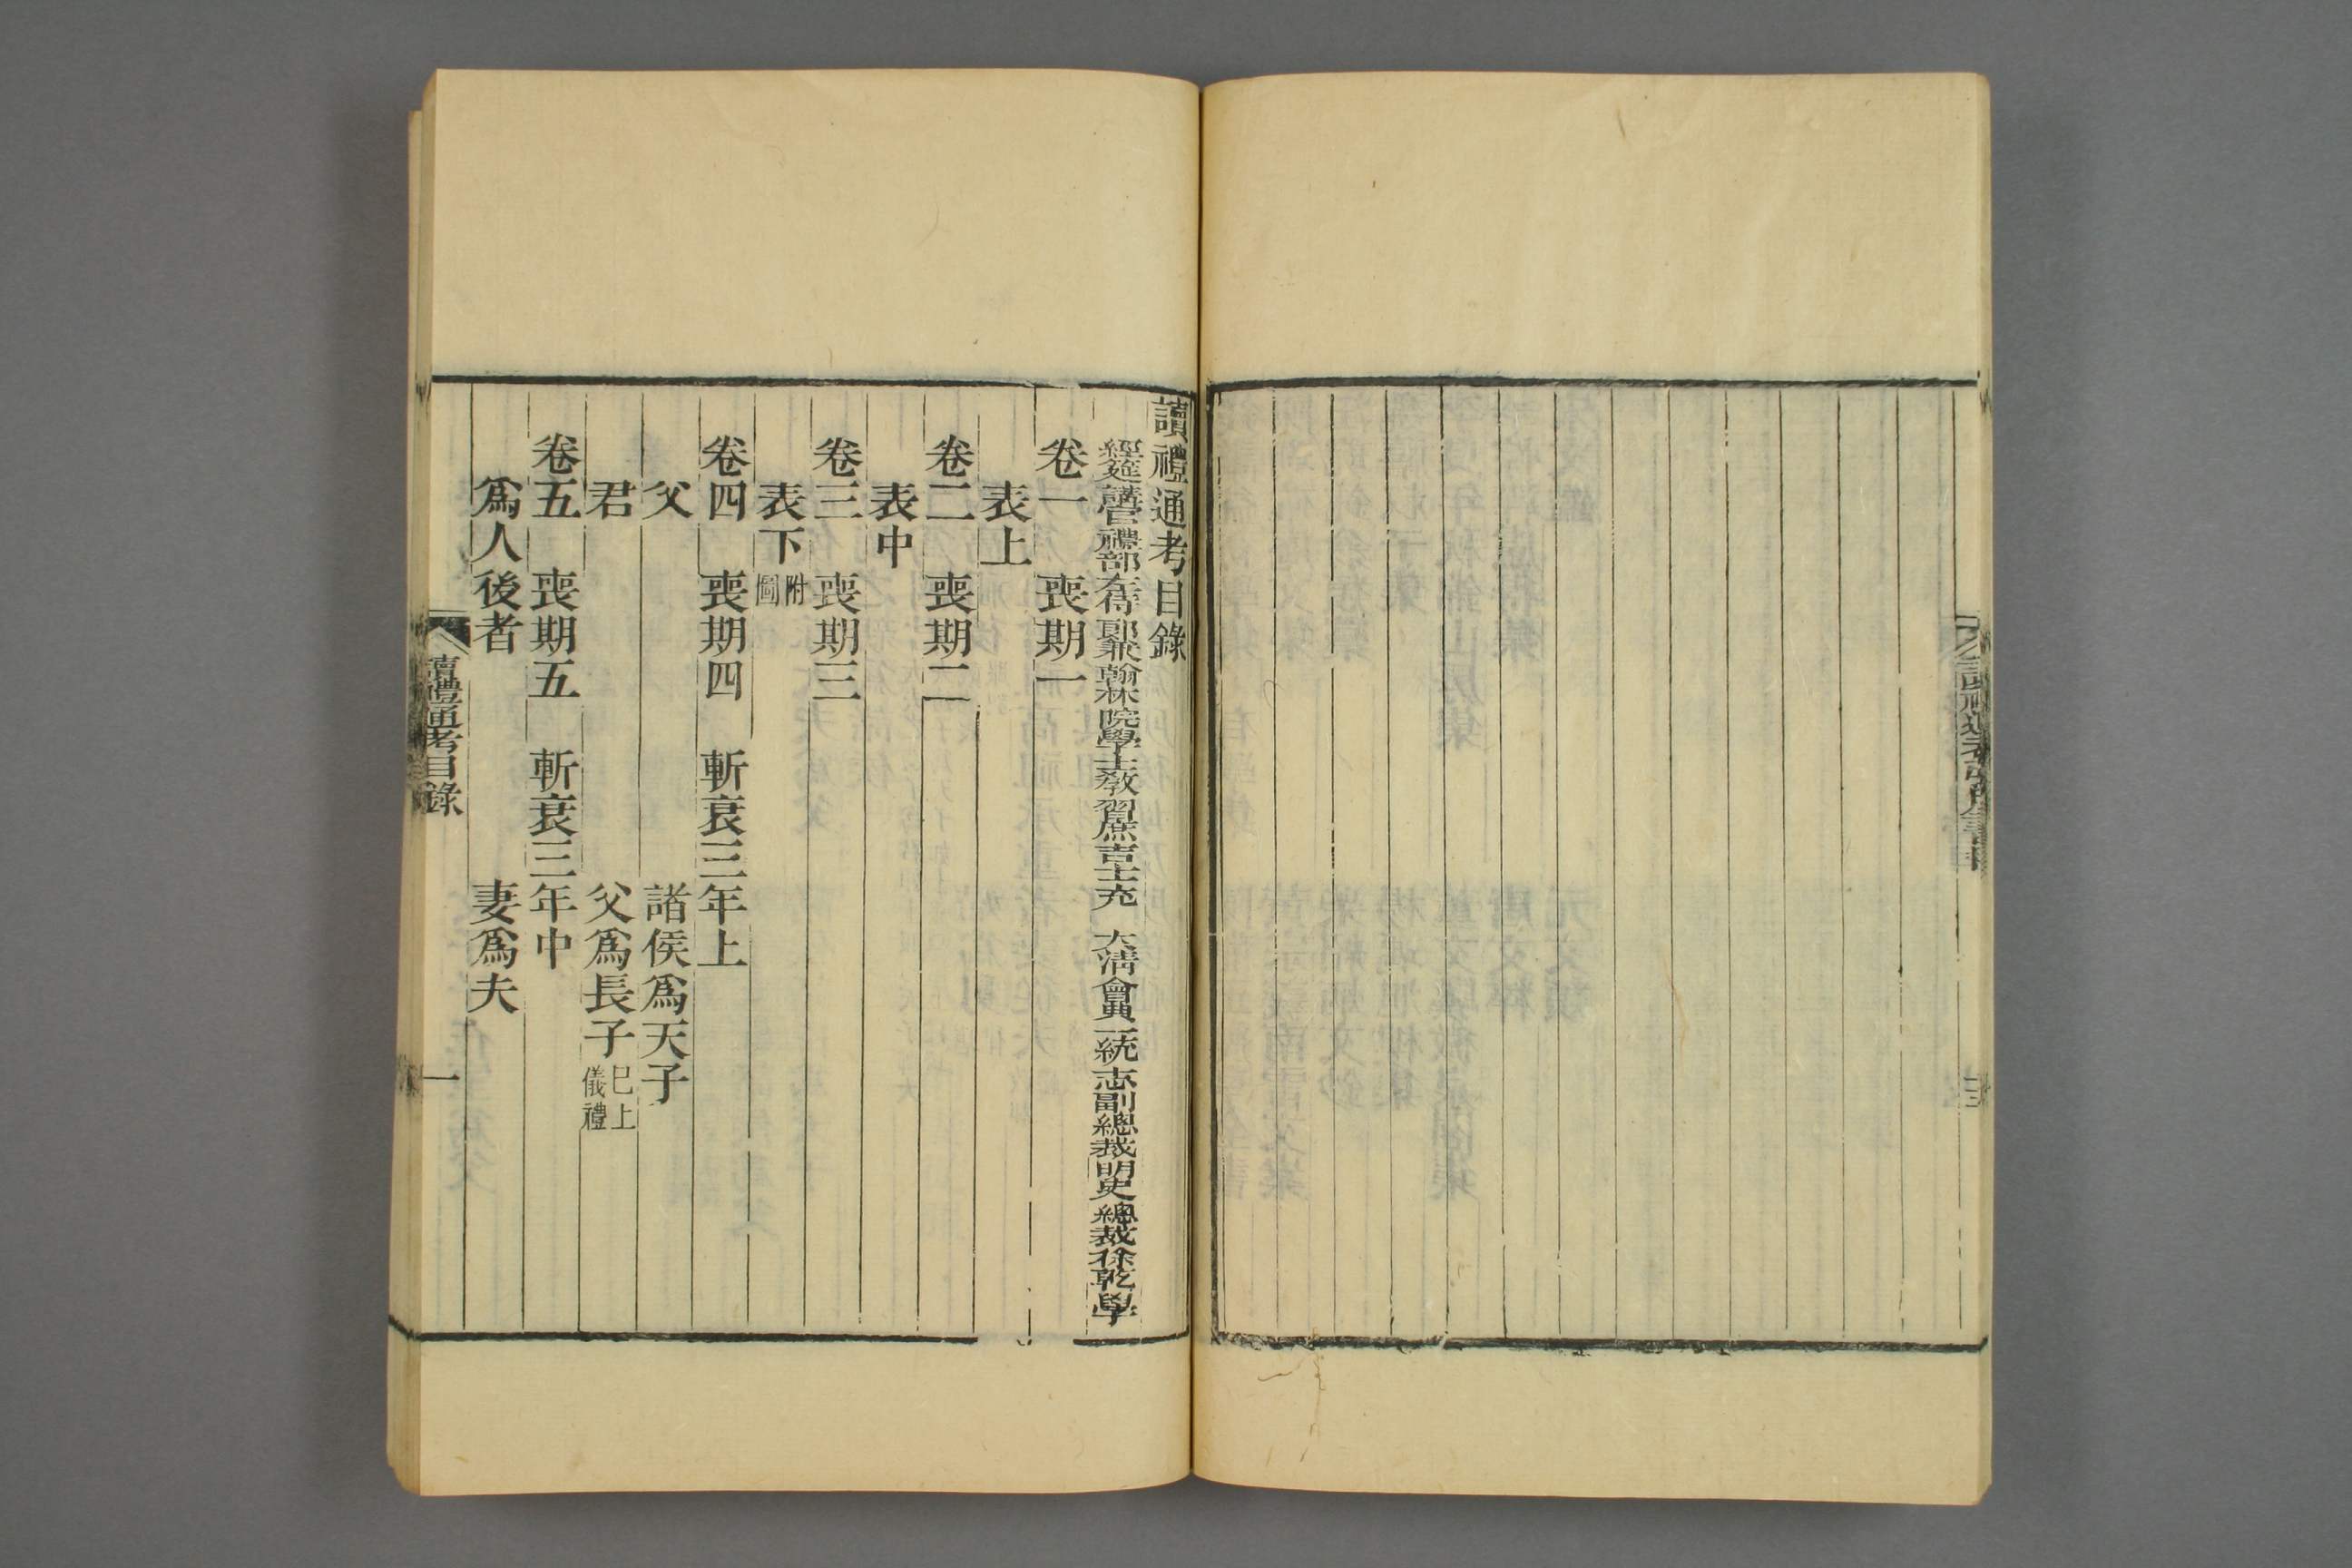 讀禮通考目錄
經筵講官禮部左侍郎兼翰林院學士敎習庶吉士充　大淸會典一統志副總裁明史總裁徐乾學
卷一　喪期一
表上
卷二　喪期二
表中
卷三　喪期三
表下　附圖
卷四　喪期四　斬衰三年上
父　諸侯爲天子
君　父爲長子　已上儀禮
卷五　喪期五　斬衰三年中
爲人後者　妻爲夫
讀禮通考目錄　一